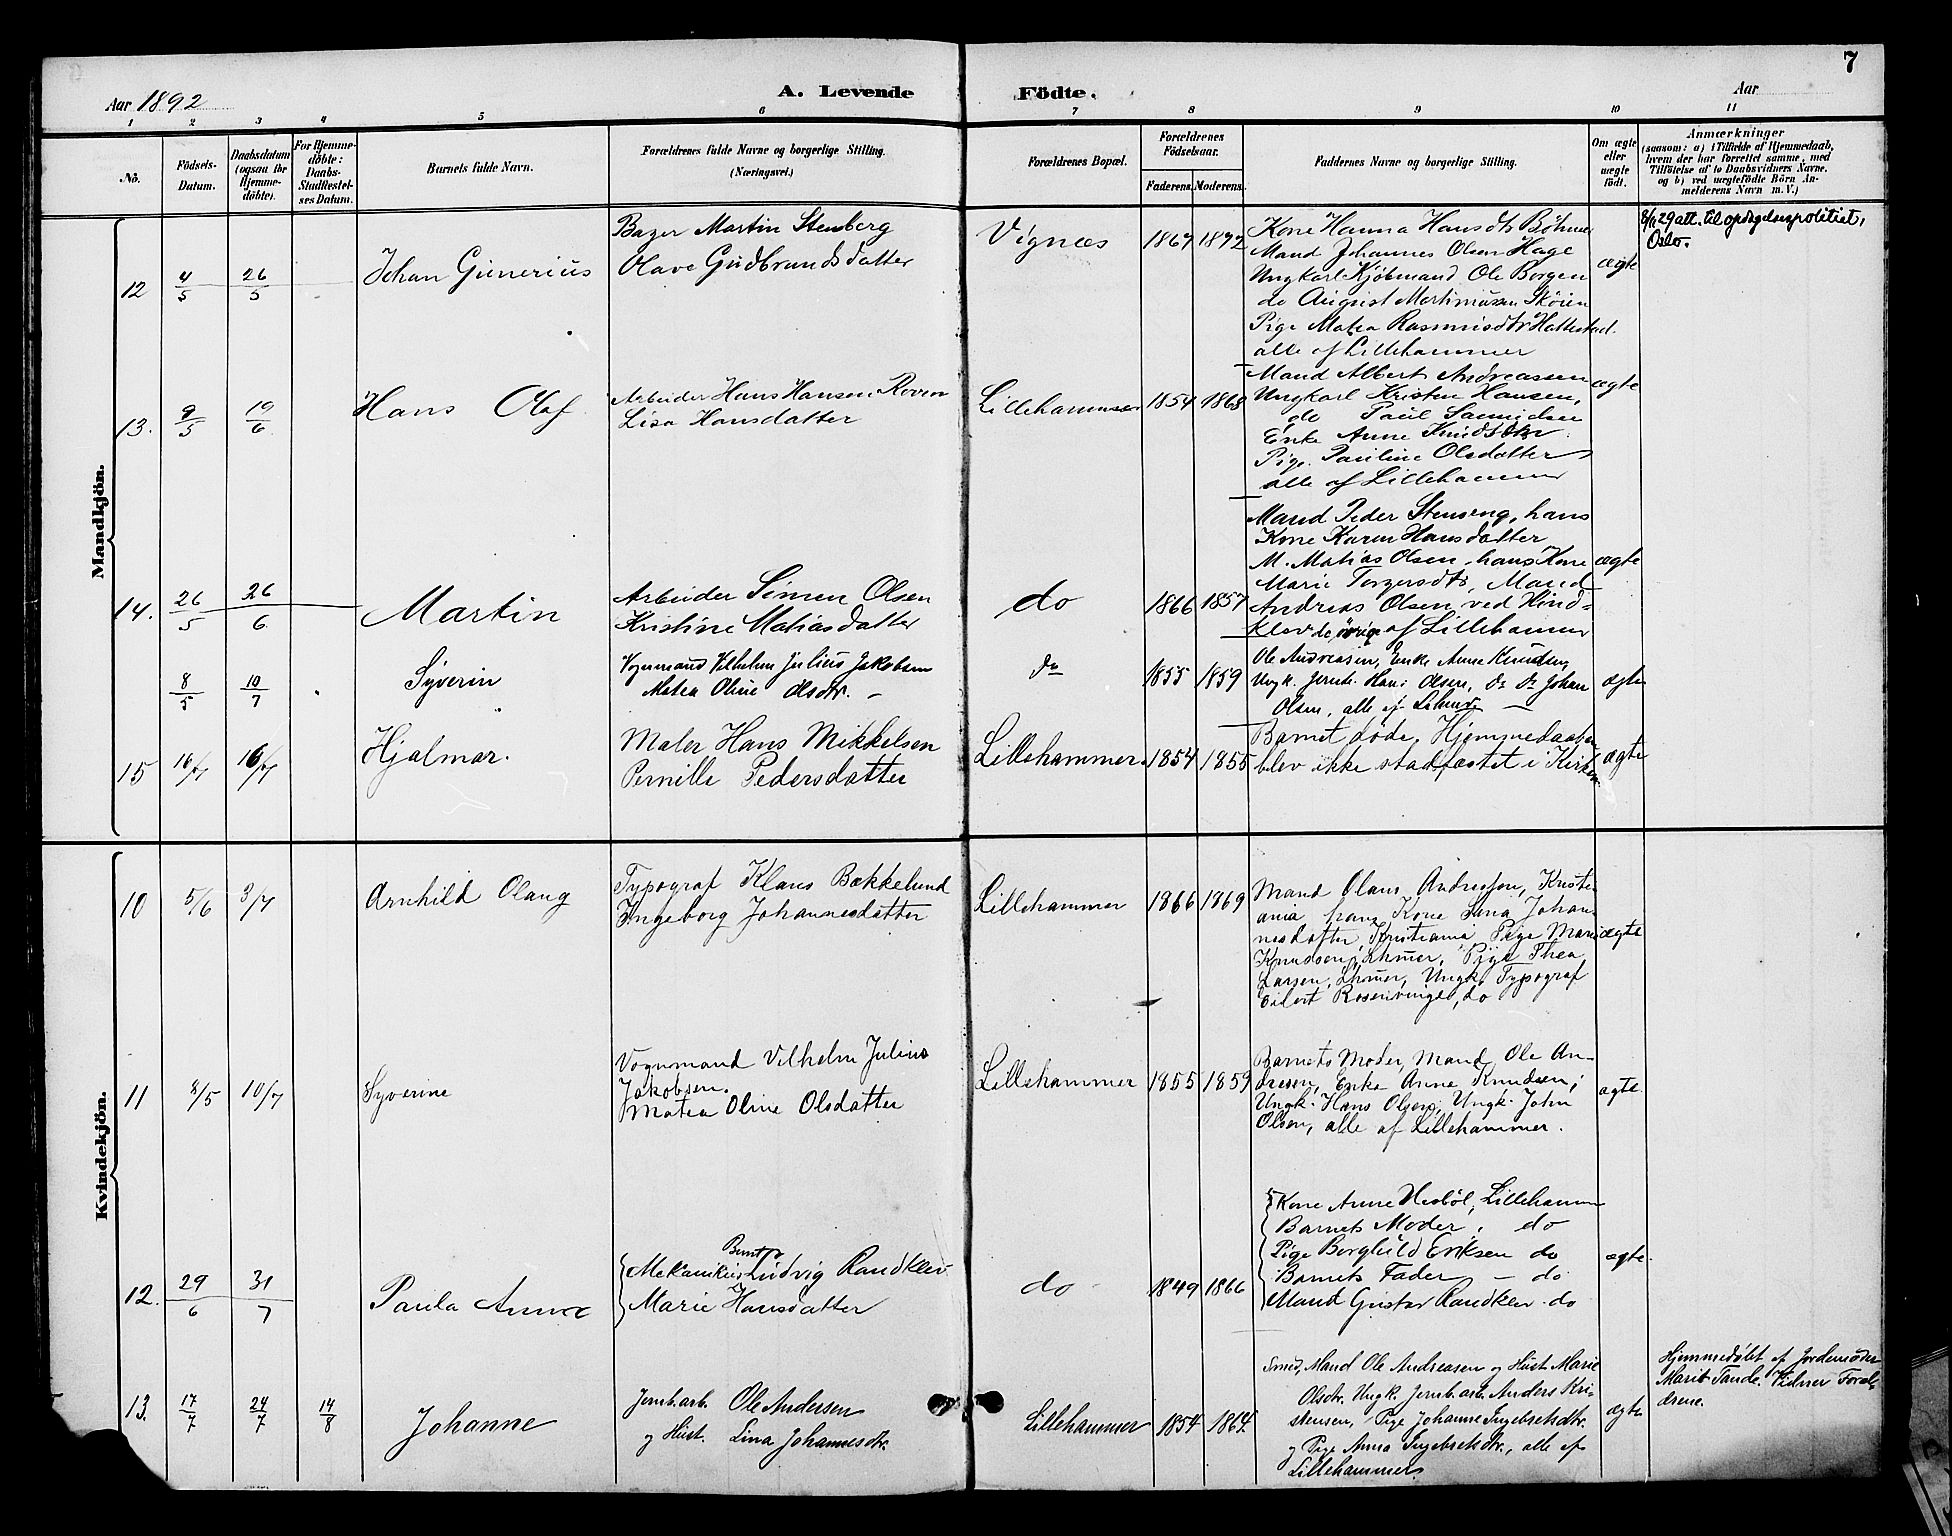 7
Aar 1892
A. Levende
Födte.
Aar
1 2 3 4 5 6 7 8 9 10 11
No.
Födsels-
Datum.
Daabsdatum
(ogsaa for
Hjemme-
döbte).
For Hjemme-
döbte:
Daabs-
Stadfæstel-
ses Datum.
Barnets fulde Navn.
Forældrenes fulde Navne og borgerlige Stilling.
(Næringsvei.)
Forældrenes Bopæl.
Forældrenes
Födselsaar.
Faderens. Moderens.
Faddernes Navne og borgerlige Stilling.
Om ægte
eller
uægte
födt.
Anmærkninger
(saasom: a) i Tilfælde af Hjemmedaab,
hvem der har forrettet samme, med
Tilföielse af to Daabsvidners Navne,
og b) ved uægtefödte Börn An-
melderens Navn m. V.)
Mandkjön.
12 4/5 26/5 Johan Gunerius
Bager Martin Stenberg
Olave Gudbrandsdatter
Vignæs 1867 1872
Kone Hanna Hansdtr Böhmer
Mand Johannes Olsen Hage
Ungkarl Kjöbmand Ole Borgen
do August Martinussen Sköien
Pige Matea Rasmusdtr Hattestad.
alle af Lillehammer
ægte
8/11 29 att. til opdagelsespolitiet,
Oslo.
13. 9/5 19/6 Hans Olaf
Arbeider Hans Hansen Roven
Lisa Hansdatter
Lillehammer 1854 1868
Mand Albert Andreassen
Ungkarl Kristen Hansen,
do Paul
Enke Anne Knudsdtr.
Pige Pauline Olsdatter
alle af Lillehammer
ægte
14. 26/5 26/6 Martin
Arbeider Simen Olsen
Kristine Matiasdatter
do 1866 1857
Mand Peder Stenseng, hans
Kone Karen Hansdatter
M. Matias Olsen, hans Kone
Marie Torgersdtr, Mand
Andreas Olsen ved Hind-
klev de övrige af Lillehammer
ægte
8/5 10/7 Syverin
Vognmand Vilhelm Julius Jakobsen
Matea Oline Olsdtr. —
do 1855 1859
Ole Andreasen, Enke Anne Knudsen,
Ungk. Jernb. Hans Olsen, do do Johan
Olsen, alle af
ægte
15 16/7 16/7 Hjalmar.
Maler Hans Mikkelsen
Pernille Pedersdatter
Lillehammer. 1854 1855
Barnet döde, Hjemmedaaben
blev ikke stadfæstet i Kirken
ægte
Kvindekjön.
10 5/6 3/7 Arnhild Olaug
Typograf Klaus Bækkelund
Ingeborg Johannesdatter
Lillehammer 1866 1869
Mand Olaus Andressen, Kristi-
ania, hans Kone Lina Johan-
nesdatter, Kristiania Pige Marie
Knudsen, Lhmer, Pige Thea
Larsen, Lhmer, Ungk. Typograf
Eilert Rosenvinge, do
ægte
11 8/5 10/7 Syverine
Vognmand Vilhelm Julius
Jakobsen.
Matea Oline Olsdatter
Lillehammer 1855 1859
Barnets Moder, Mand Ole An-
dresen, Enke Anne Knudsen,
Ungk. Hans Olsen, Ungk. John
Olsen, alle af Lillehammer.
ægte.
12. 29/6 31/7 Paula Anna
Mekanikus Bernt Ludvig Randklev
Marie Hansdatter
do 1849 1866
Kone Anne Nesböl, Lillehammer
Barnets Moder. do
Pige Borghild Eriksen do
Barnets Fader — do
Mand Gustav Randklev do
ægte.
13. 17/7 24/7 14/8 Johanne
Jernb.arb. Ole Andersen
og Hust. Lina Johannesdtr.
Lillehammer 1854 1864
Smed, Mand Ole Andreasen og Hust. Marie
Olsdtr. Ungk. Jernb.arb. Anders Kri-
stensen, Pige Johanne Ingebretsdtr.
og Pige Anna Ingebretsdtr., alle af
Lillehammer
ægte
Hjemmedöbt af Jordemoder
Marit Tande. Vidner Foræl-
drene.